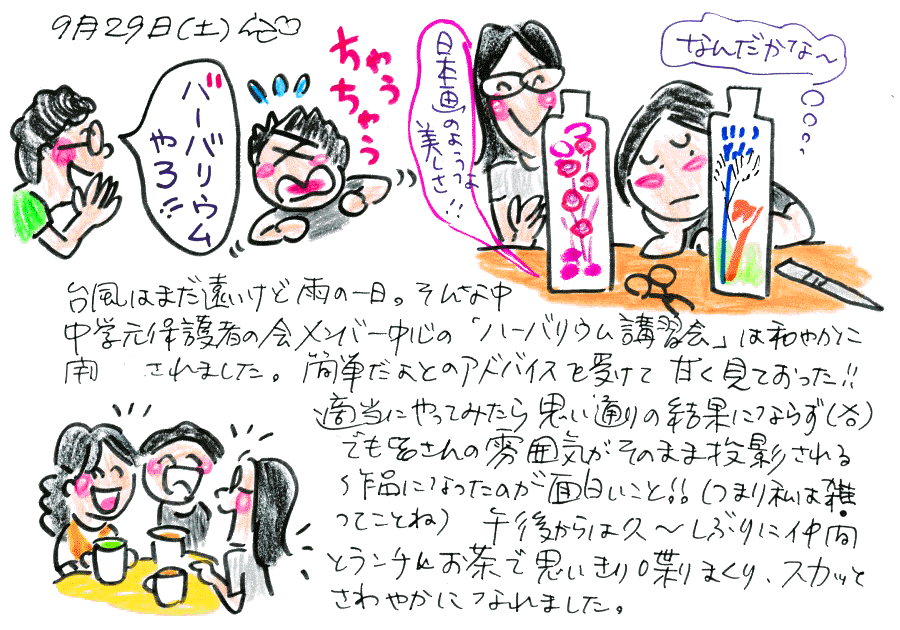 9月29日(土)
バーバリウム
やろ!!
ちゃう
ちゃう
日本画のような
美しさ!!
なんだかな〜
台風はまだ遠いけど雨の一日。そんな中
中学元保護者の会メンバー中心の「ハーバリウム講習会」は和やかに
されました。簡単だよとのアドバイスを受けて甘く見ておった!!
適当にやってみたら思い通りの結果にならず(谷)
でも皆さんの雰囲気がそのまま投影される
作品になったのが面白いこと!!(つまり私は雑
ってことね) 午後からは久〜しぶりに仲間
とランチ&お茶で思いきり喋りまくり、スカッと
さわやかになれました。